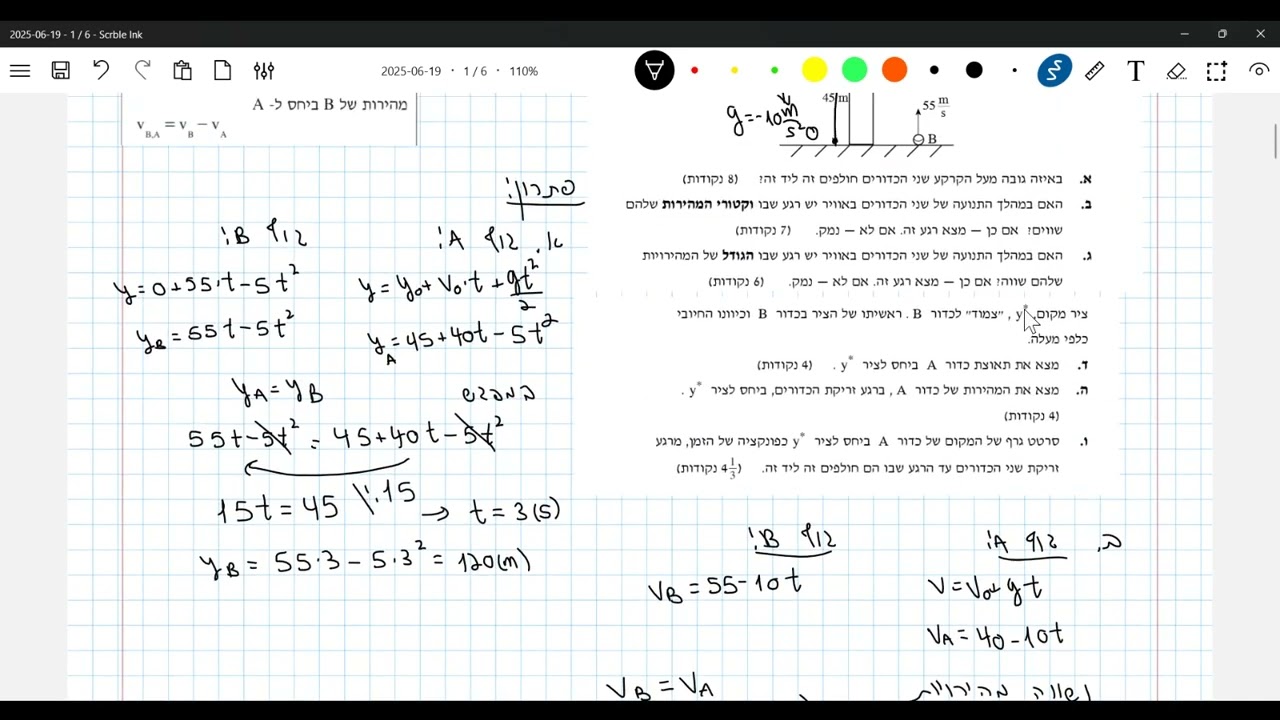 2025-06-19 - 1 / 6 - Scrble Ink
2025-06-19 · 1 / 6 · 110%
T
מהירות של B ביחס ל- A
v_B,A = v_B − v_A
g=-10 m/s²
45 m
0
55 m/s
B
א. באיזה גובה מעל הקרקע שני הכדורים חולפים זה ליד זה? (8 נקודות)
ב. האם במהלך התנועה של שני הכדורים באוויר יש רגע שבו וקטורי המהירות שלהם
שווים? אם כן — מצא רגע זה. אם לא — נמק. (7 נקודות)
ג. האם במהלך התנועה של שני הכדורים באוויר יש רגע שבו הגודל של המהירויות
שלהם שווה? אם כן — מצא רגע זה. אם לא — נמק. (6 נקודות)
ציר מקום, y*, "צמוד" לכדור B. ראשיתו של הציר בכדור B וכיוונו החיובי
כלפי מעלה.
ד. מצא את תאוצת כדור A ביחס לציר y*. (4 נקודות)
ה. מצא את המהירות של כדור A, ברגע זריקת הכדורים, ביחס לציר y*.
(4 נקודות)
ו. סרטט גרף של המקום של כדור A ביחס לציר y* כפונקציה של הזמן, מרגע
זריקת שני הכדורים עד הרגע שבו הם חולפים זה ליד זה. (4 1/3 נקודות)
פתרון:
א. גוף A:
y = y₀ + v₀·t + gt²/2
y_A = 45+40t − 5t²
גוף B:
y = 0+55·t − 5t²
y_B = 55t − 5t²
במפגש y_A = y_B
55t − 5t² = 45+40t − 5t²
15t = 45 \:15 → t = 3(s)
y_B = 55·3 − 5·3² = 120(m)
ב. גוף A:
v = v₀+gt
v_A = 40 − 10t
גוף B:
v_B = 55 − 10t
נשווה מהירויות
v_B = v_A